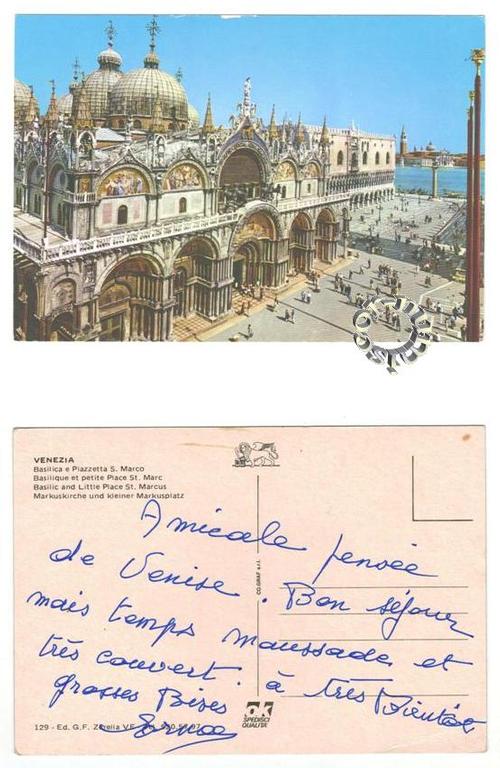 VENEZIA
Basilica e Piazzetta S. Marco
Basilique et petite Place St. Marc
Basilic and Little Place St. Marcus
Markuskirche und kleiner Markusplatz
CO.GRAF s.r.l.
Amicale pensée
de Venise. Bon séjour
mais temps maussade et
très couvert. à très Bientôt
grosses Bises
129 - Ed. G.F. Zerella VE
OK
SPEDISCI
QUALITA'